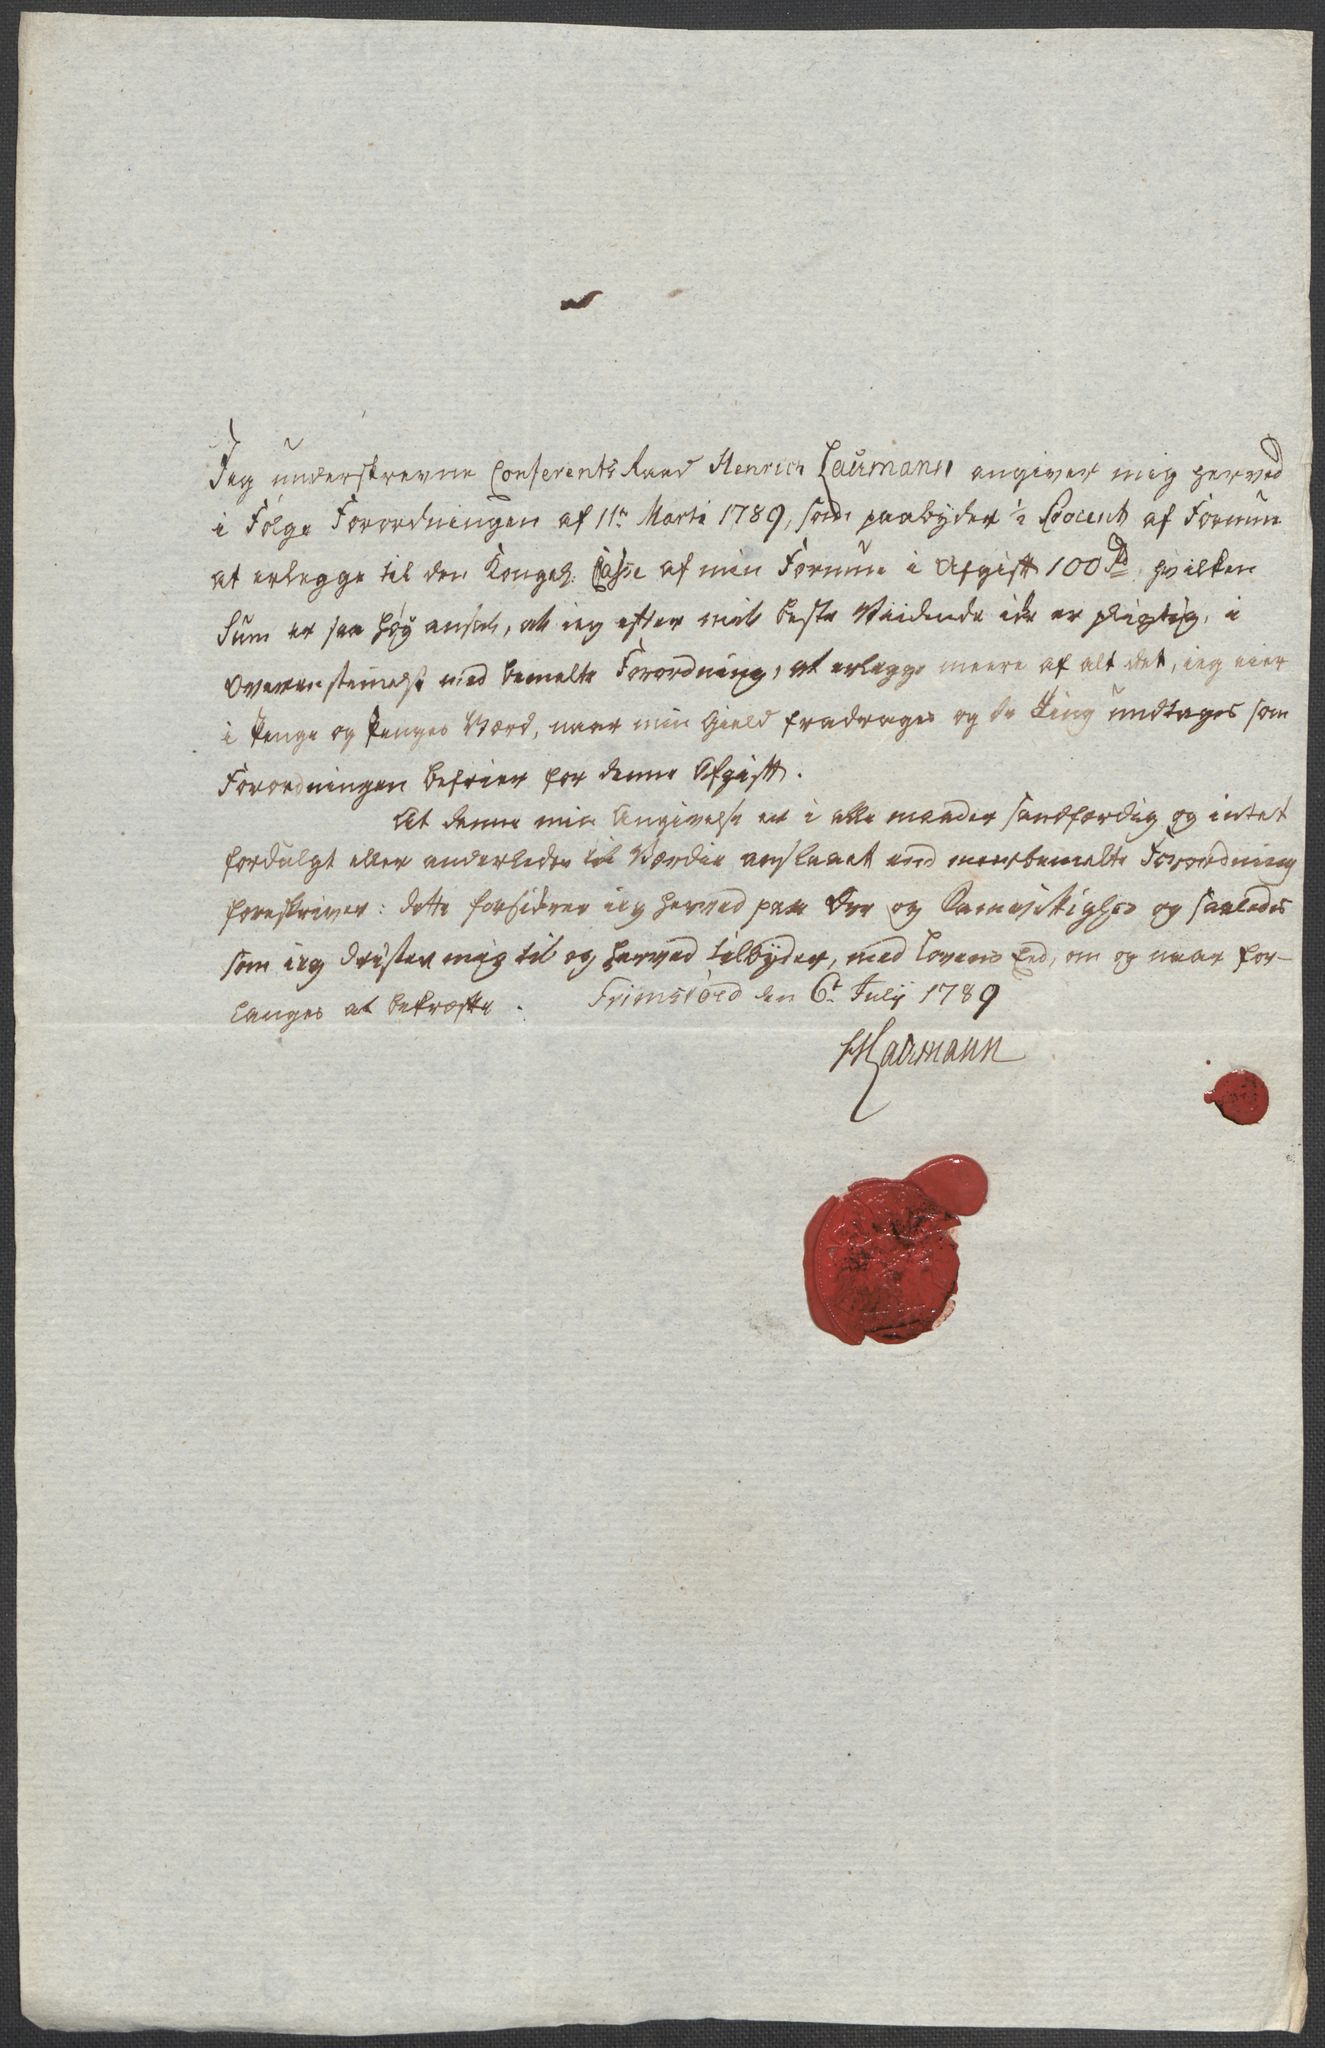 Jeg underskrevne Conferents Raad Henrich Laurmann angiver mig herved
i Følge Forordningen af 11te Marti 1789, som paabyder ½ Procent af Formue
at erlegge til den Kongel: Casse af min Formue i Afgift 100 Rd hvilken
Sum er saa høy ansat, at ieg efter mit beste Vidende ike er pligtig, i
Overenstemelse med bemelte Forordning, at erlegge meere af alt det, ieg eier
i Penge og Penges Værd, naar min Gield fradrages og de Ting undtages som
Forordningen befrier for denne Afgift.
At denne min Angivelse er i alle maader sandfærdig og intet
fordulgt eller anderledes til Værdie anslaaet end meerbemelte Forordning
foreskriver: dette forsikrer ieg herved paa Ære og Samvittighed og saaledes
som ieg drister mig til og herved tilbyder, med Lovens Eed, om og naar for-
langes at bekræfte. den 6t July 1789
HLaurmann